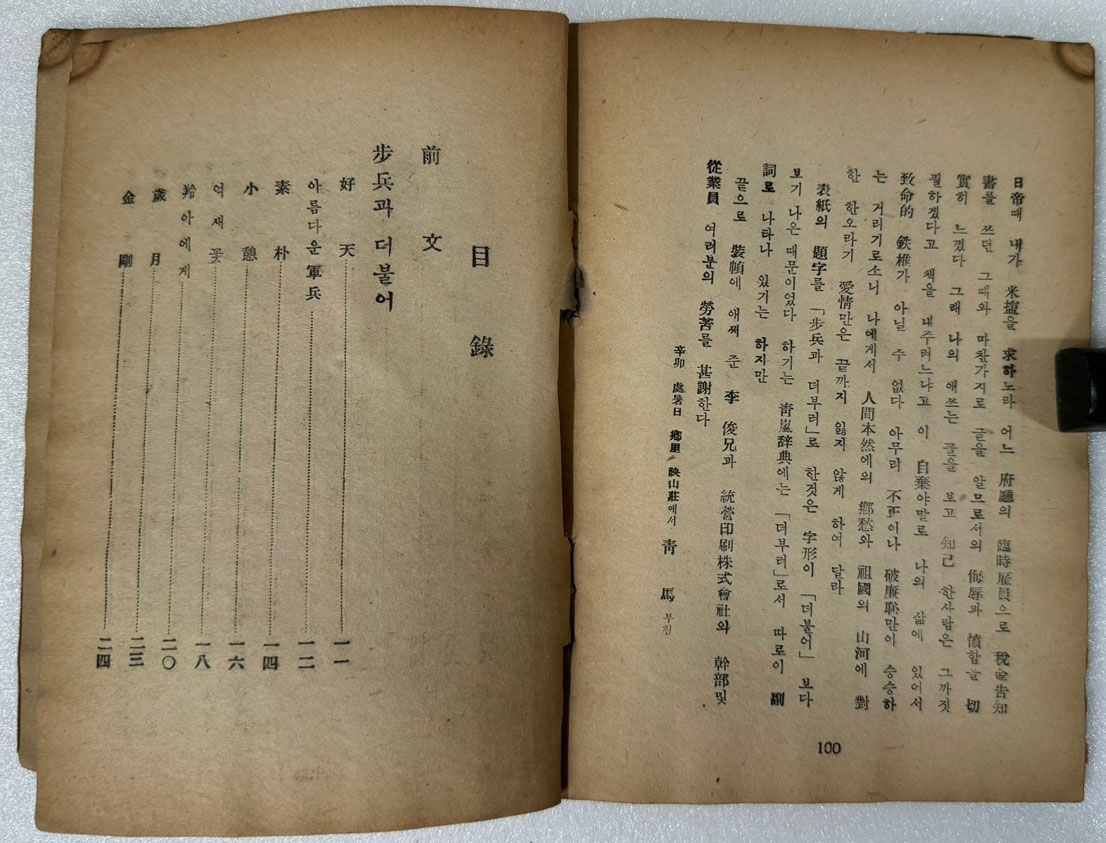 日帝때 내가 米塩을 求하노라 어느 府廳의 臨時雇員으로 稅金告知
書를 쓰던 그때와 마찬가지로 글을 앎므로서의 侮辱과 憤함을 切
實히 느꼈다 그래 나의 애쓰는 꼴을 보고 知己 한사람은 그까짓
필하겠다고 책을 내주려느냐고 이 自棄야말로 나의 삶에 있어서
致命的 鉄椎가 아닐 수 없다 아무리 不正이나 破廉恥만이 승승하
는 거리기로소니 나에게서 人間本然에의 鄕愁와 祖國의 山河에 對
한 한오라기 愛情만은 끝까지 잃지 않게 하여 달라
表紙의 題字를 「步兵과 더부러」로 한것은 字形이 「더불어」 보다
보기 나은 때문이었다 하기는 靑嵐辞典에는 「더부러」로서 따로이 副
詞로 나타나 있기는 하지만
끝으로 裝幀에 애써 준 李 俊兄과 統營印刷株式會社의 幹部및
從業員 여러분의 勞苦를 甚謝한다
辛卯 處暑日 鄕里 映山莊에서 靑馬 부침
100
目錄
前文
步兵과 더불어
好天 一一
아름다운 軍兵 一二
素朴 一四
小憩 一六
억새꽃 一八
羚아에게 二〇
歲月 二三
金剛 二四